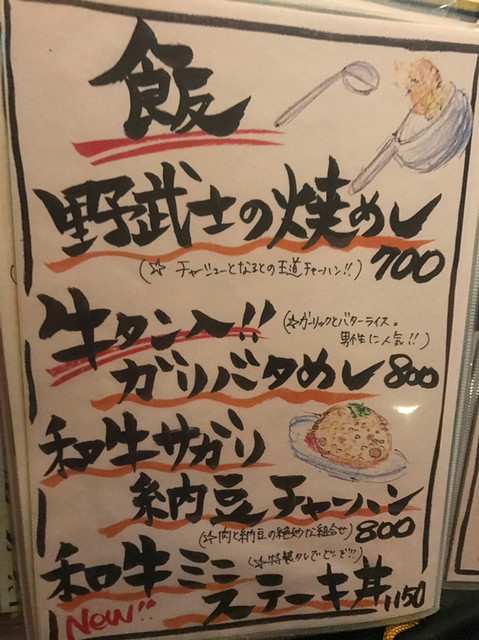 飯
野武士の焼めし
(☆チャーシューとなるとの王道チャーハン!!) 700
牛タン入!!
(☆ガーリックとバターライス。
男性に人気!!)
ガリバタめし 800
和牛サガリ
納豆チャーハン
(☆肉と納豆の絶妙な組合せ) 800
和牛ミニ
(☆特製タレでどうぞ!!)
ステーキ丼 1150
New!!